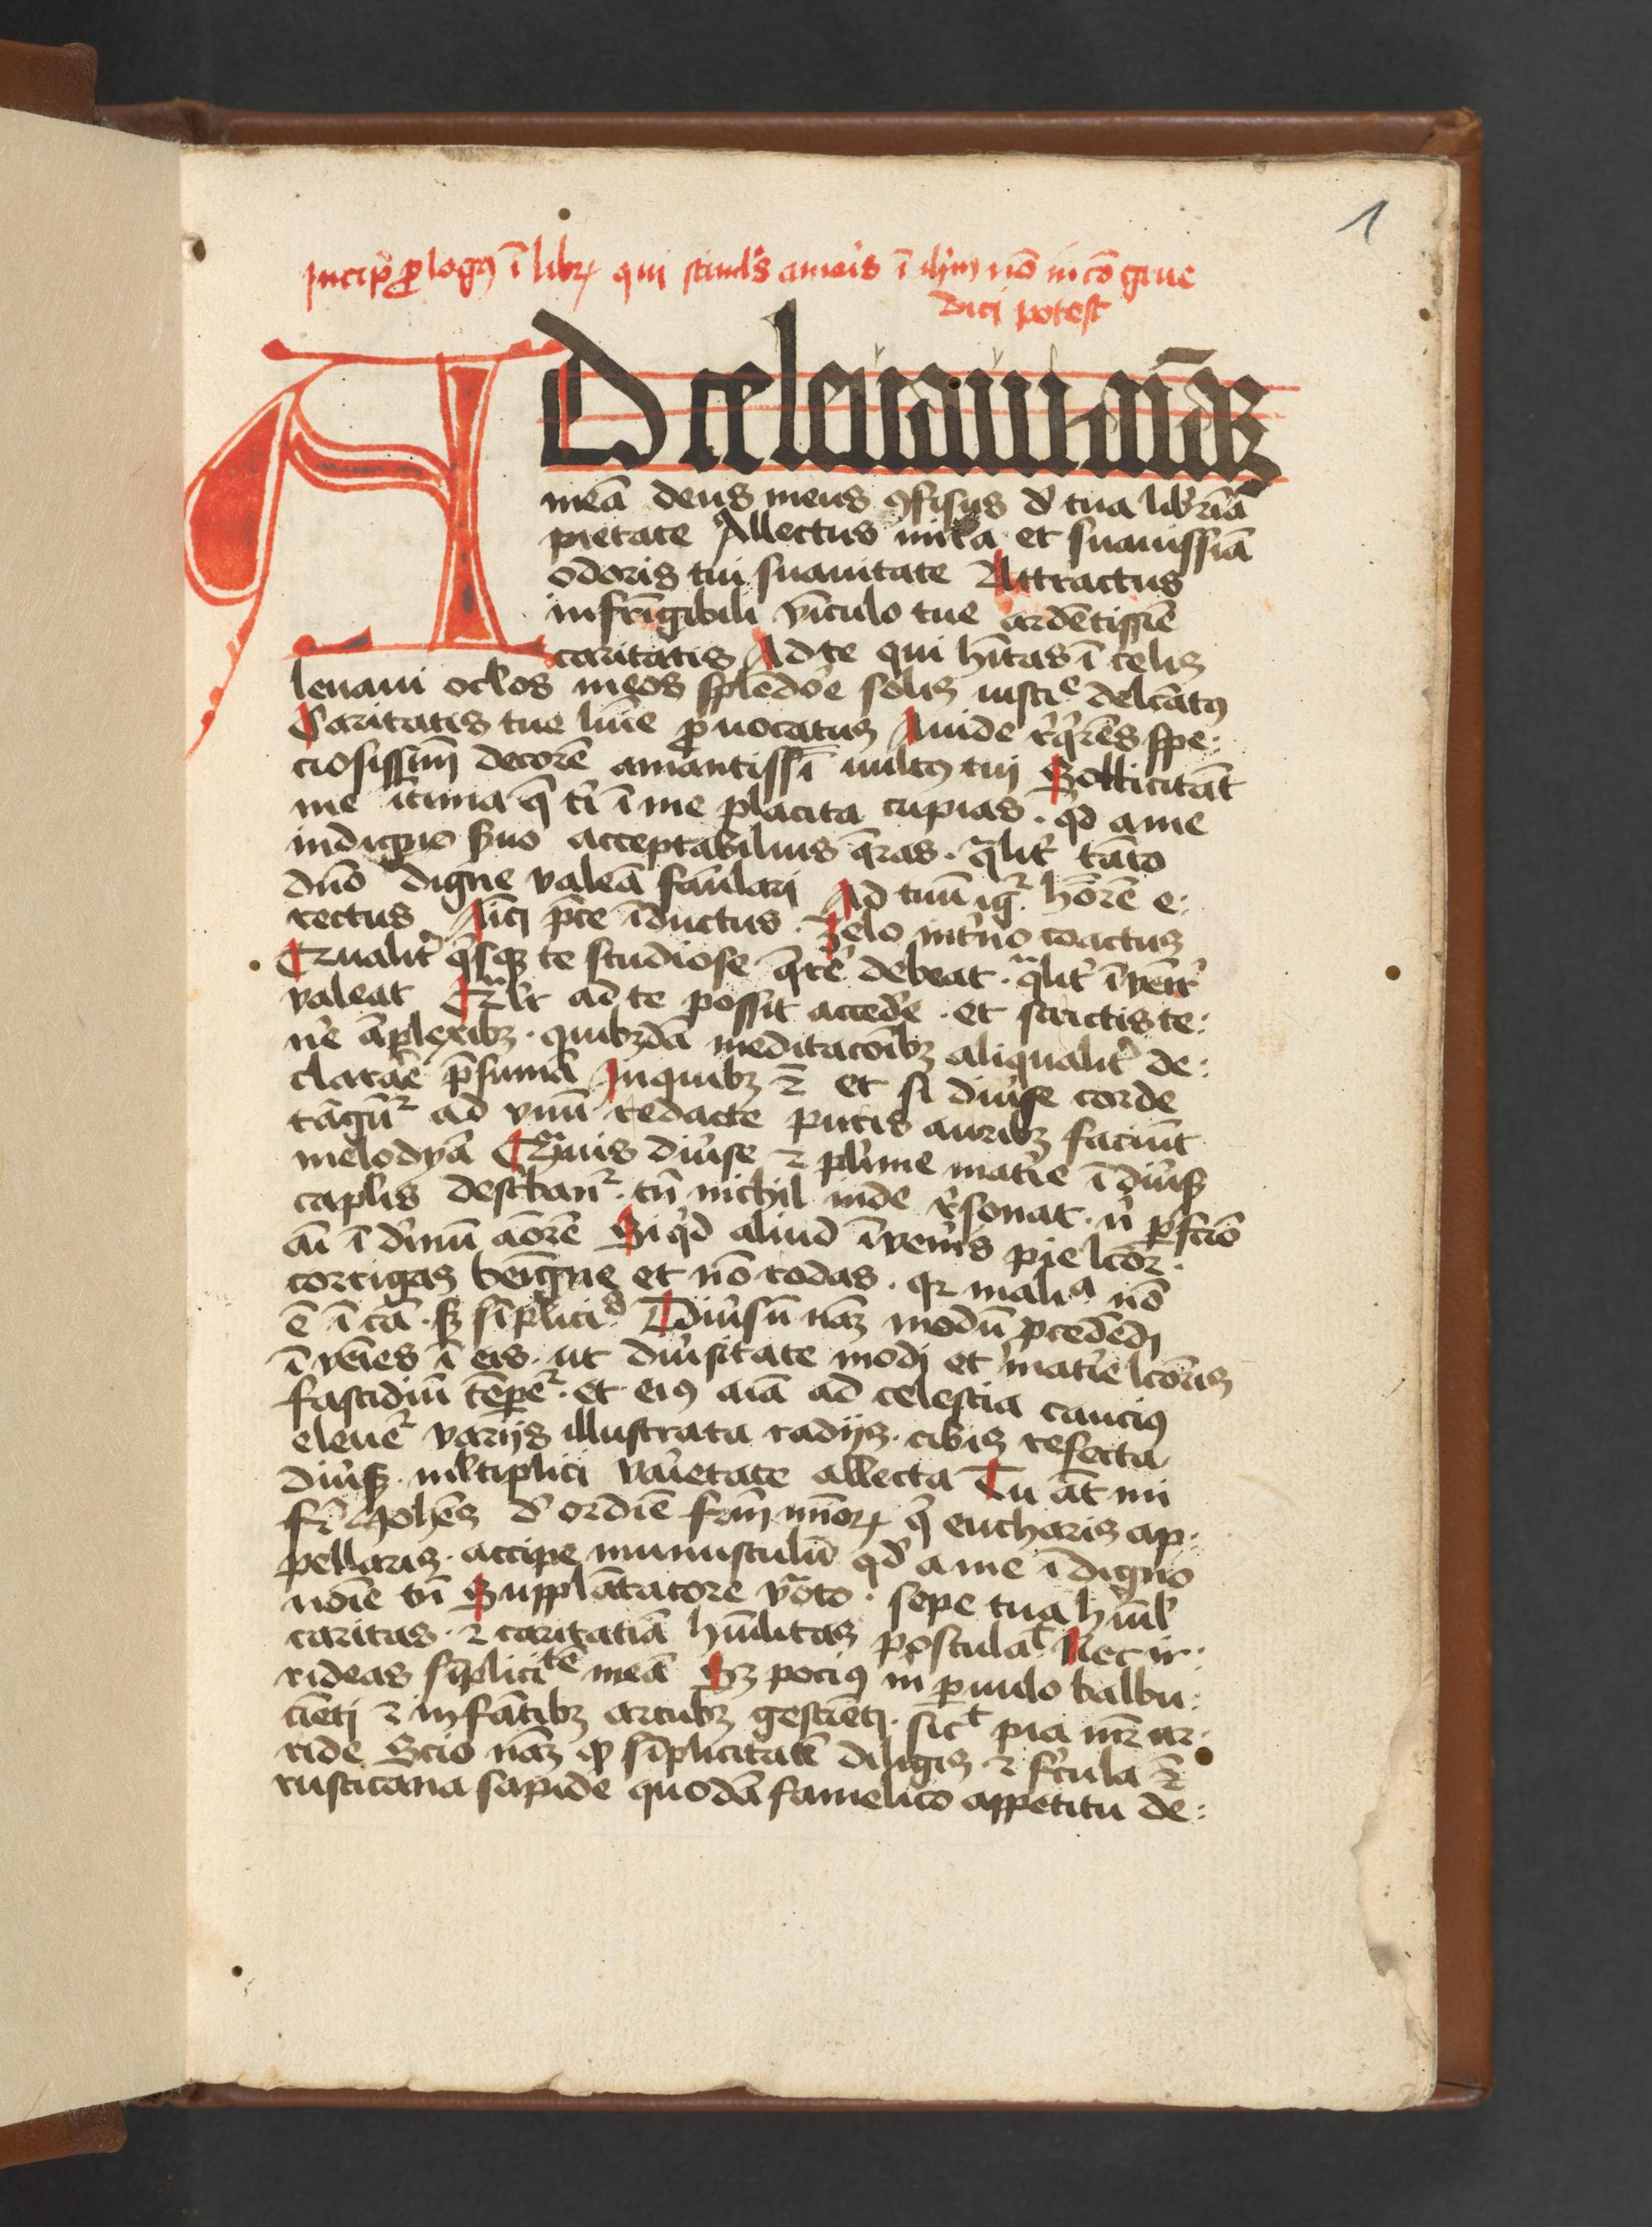 1
Incip̄ ꝓlogꝰ ī libꝝ qui stimlꝰs amoris ī ihm̄ nō incōgrue
dici potest
AD te leuaui aīaꝫ
meā deus meus ꝯfisus d̕ tua lib̕rīa
pietate Allectus mira et suauissīa
odoris tui suauitate Attractus
infrīgibili vīculo tue ardētissīe
caritatis Ad te qui hītas ī celis
leuaui oclos meos splēdore solis iusticie delcātꝰ
Caritatis tue lūīe ꝓuocatus Auide rq̄rēs spe:
ciosissimū decorē amantissī uultꝰ tui Sollicitāt
me ītima q̄ t̄ ī me placita cupias. qd̄ a me
indigno s̄uo acceptabilius q̄ras. qūalit̄ tāto
dn̄o digne valeā fāulari Ad tuū igꝰ. hōrē e:
rectus Aīci p̄ce īductus. Zelo int̄no coactus
Qualit̄ q̄sqꝫ te studiose q̄re debeat. qūalit̄ īuenir̄
valeat Qūalr̄ ad te possit accedē. et strictis te:
nē āplexibꝫ. quibꝫdā meditacōībꝫ aliqualit̄ de:
clarāe p̄sumā In quibꝫ ⁊ et si diūse corde
tāgūꝰ ad vnū redacte puris auribꝫ faciūt
melodyā Qūauis diūse ⁊ plūme mat̄ie ī diūsꝭ
caplis desc̄banꝰ. tn̄ nichil inde rsonat. n̄ pfcīō
aīi ī diuinū aōrē Si qd̄ aliud īueniīs pie lcōr.
corrigas beīgne et nō rodas. qꝛ malicia nō
ē ī cā. sꝫ sīplicid Diūsū nāꝫ modū ꝓcedēdi
īvenies ī eis. ut diūsitate modi et mat̄ie lcōris
fastidiū tēpeꝰ. et eiꝰ aīa ad celestia caucius
eleueꝰ varijs illustrata radijs. cibis refecta
diūsꝭ. ml̄tiplici vaīetate allecta Tu āt mi
fr̄ Iohēs d̕ ordīe frm̄ mīorꝝ q̄ eucharis ap:
pellaris. accipe munusculū qd̄ a me īdigno
noīe tn̄ Supplātatore vōto. sepe tua hūil̄
caritas. ⁊ caritatiā hūilitas postulat Nec ir:
rideas sīplicitatē meā Sꝫ pociꝰ m̄ paruulo balbu:
ciēti ⁊ infātibꝫ artubꝫ gestiēti. sict pia mr̄ ar:
ride Scio nāꝫ qꝫ sīplicitatē diligis ⁊ fcula ⁊
rusticana sapide quodā famelico appetitu de: